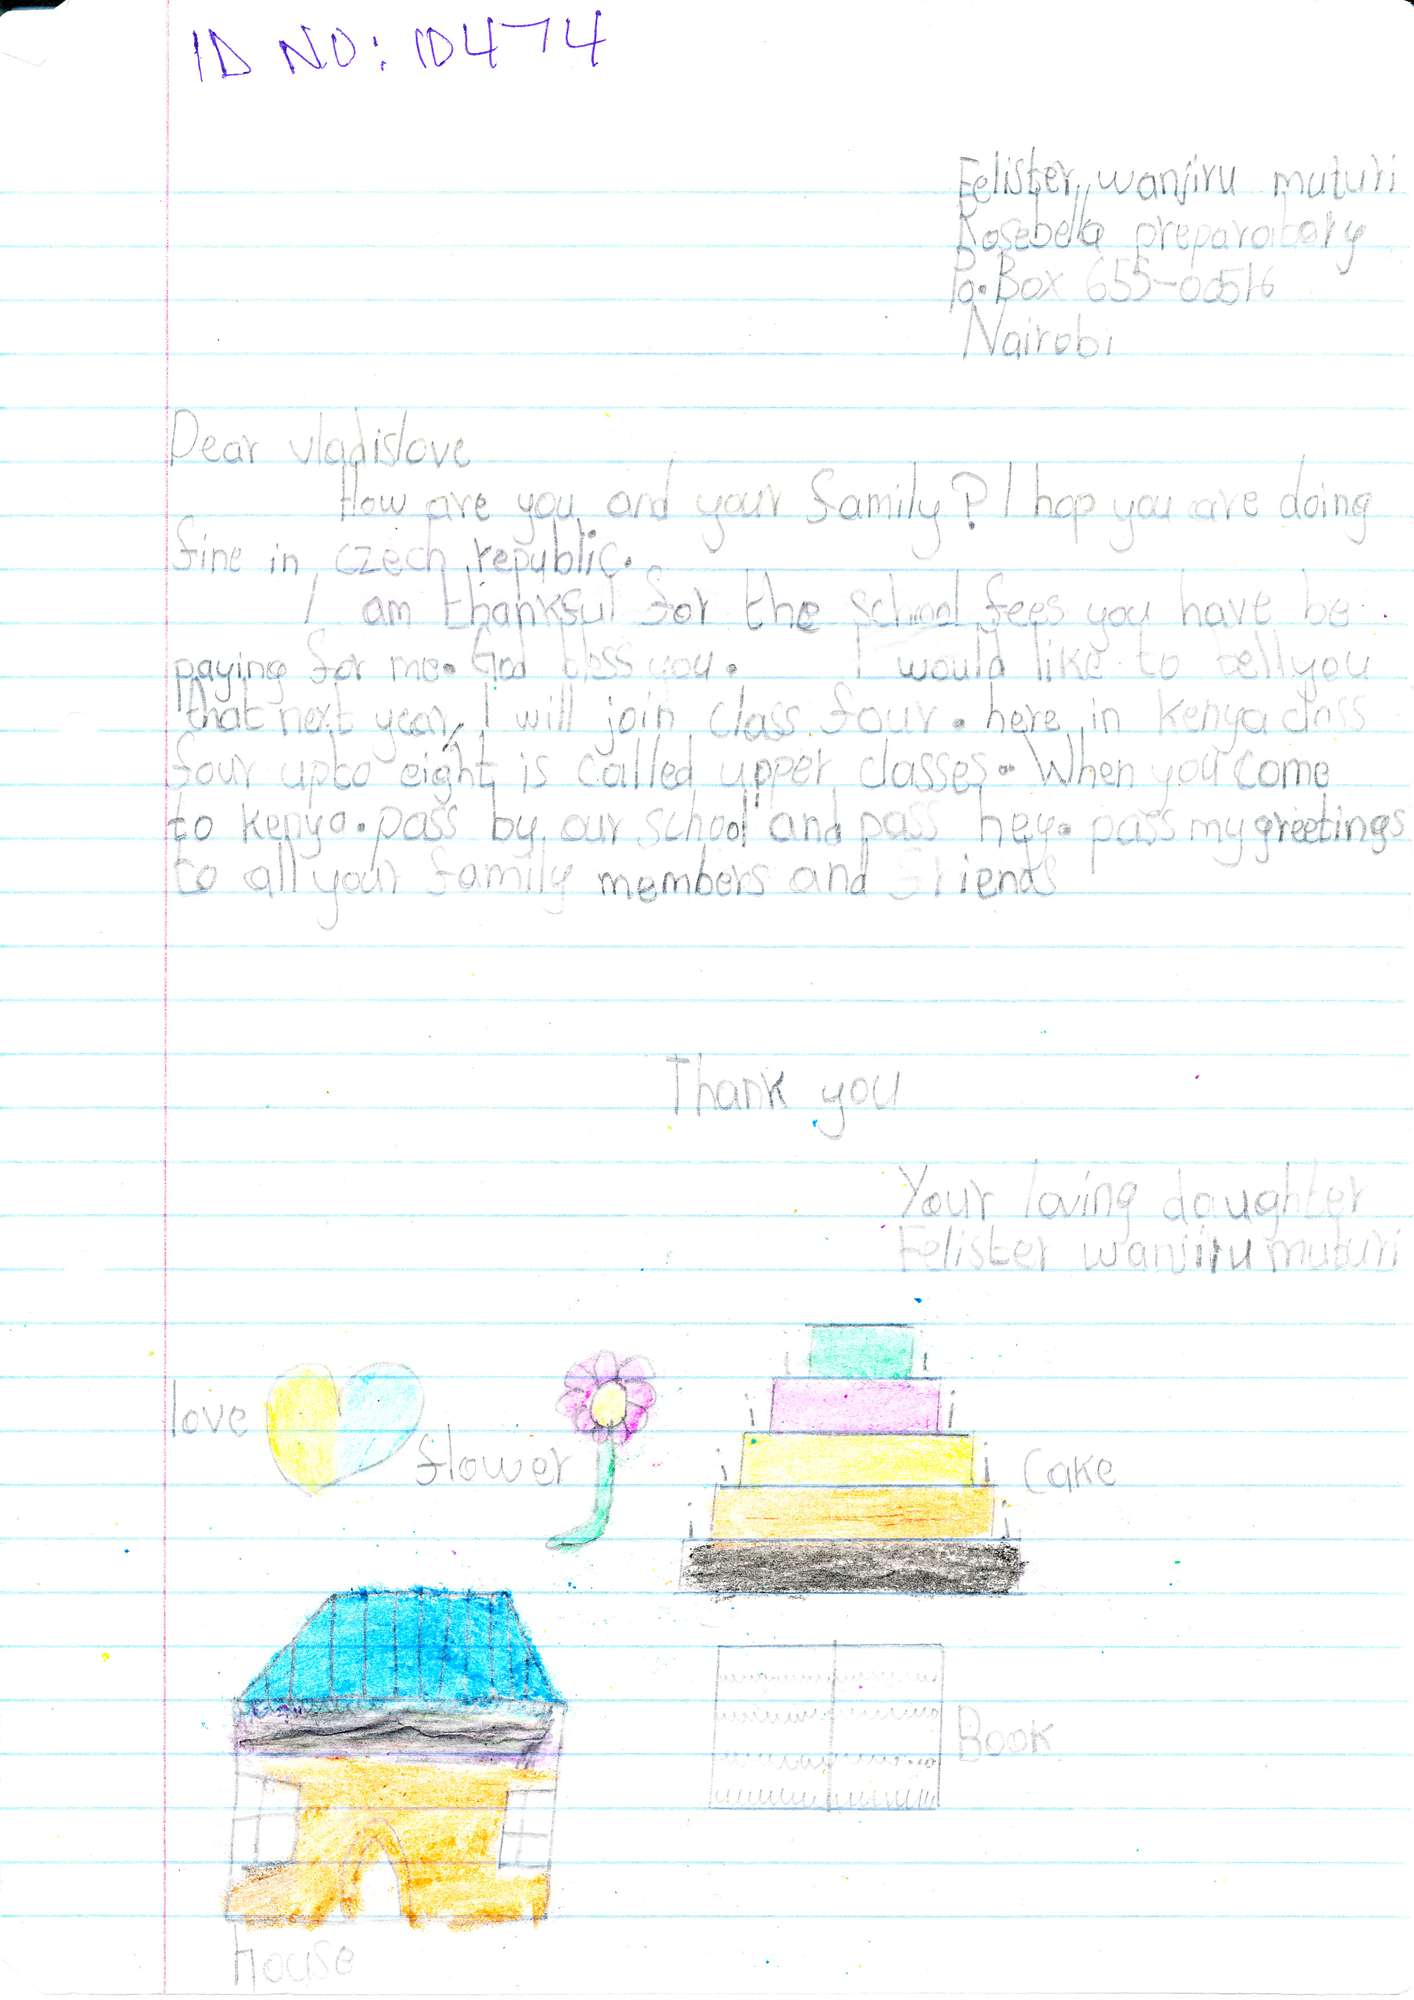 ID NO: 10474
Felister wanjiru muturi
Rosebella preparatory
Po. Box 655-00516
Nairobi
Dear vladislove
How are you and your family? I hop you are doing
fine in czech republic.
I am thankful for the school fees you have be
paying for me. God bless you. I would like to tell you
that next year, I will join class four. here in kenya class
four upto eight is called upper classes. When you come
to kenya. pass by our school and pass hey. pass my greetings
to all your family members and friends
Thank you
Your loving daughter
Felister wanjiru muturi
love
flower
Cake
Book
house